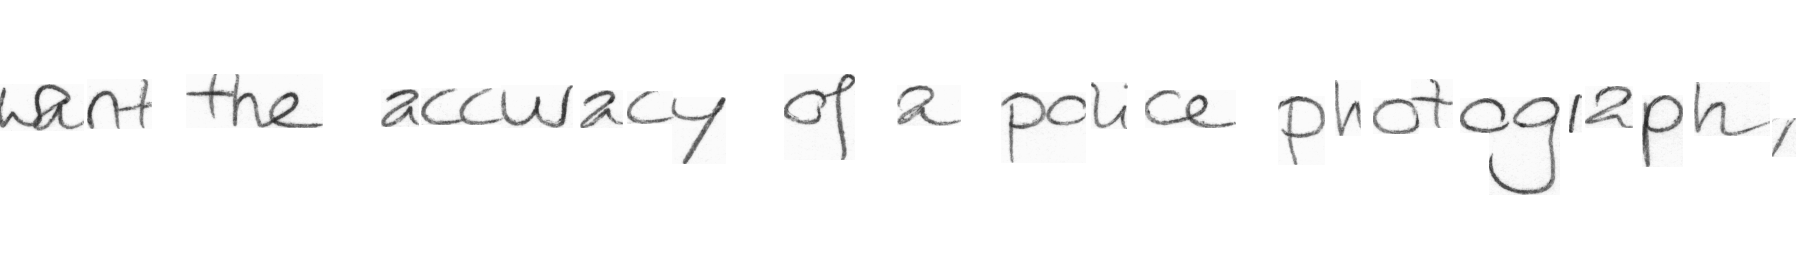 want the accuracy of a police photograph,